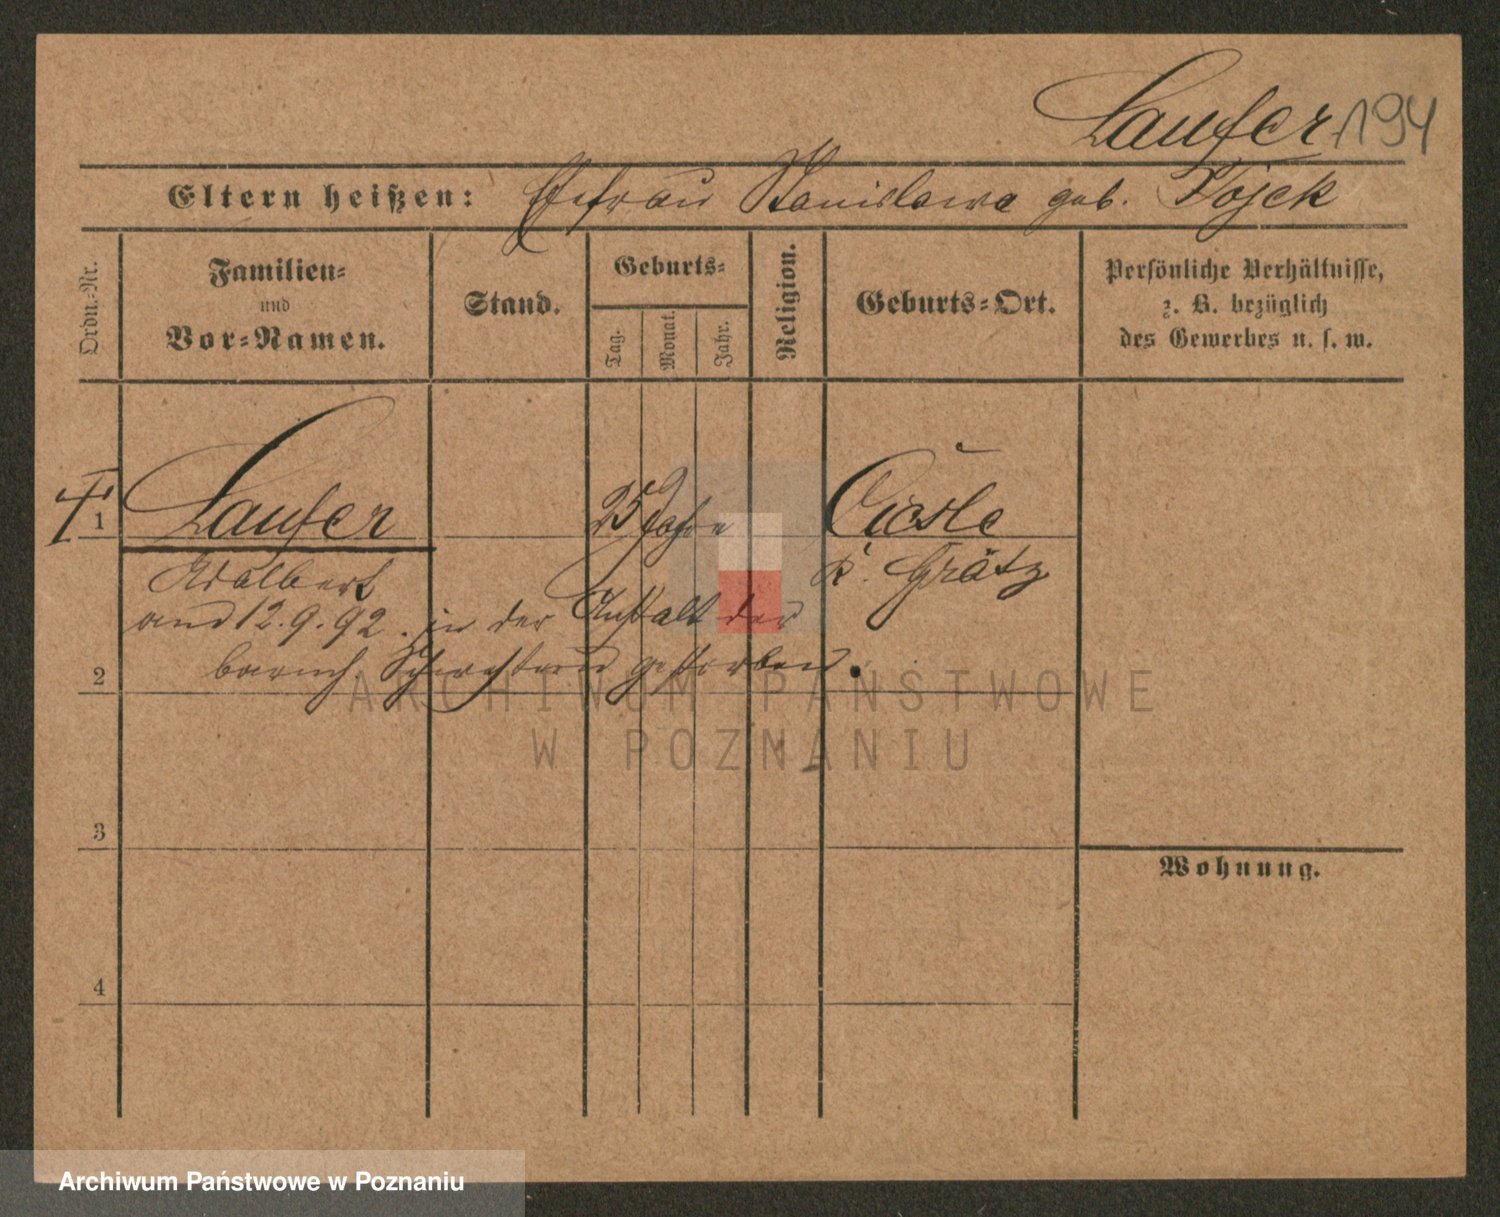 Laufer 194
Eltern heißen: Ehefrau Stanislawa geb. Tojek
Ordn.-Nr.
Familien-
und
Vor-Namen.
Stand.
Geburts-
Tag.
Monat.
Jahr.
Religion.
Geburts-Ort.
Persönliche Verhältnisse,
z. B. bezüglich
des Gewerbes u. s. w.
1 Laufer 25 Jahre
K. Grätz
Adalbert
12.9.92. in der Anstalt der
barmh. Schwestern gestorben.
2
ARCHIWUM PAŃSTWOWE
W POZNANIU
3
Wohnung.
4
Archiwum Państwowe w Poznaniu